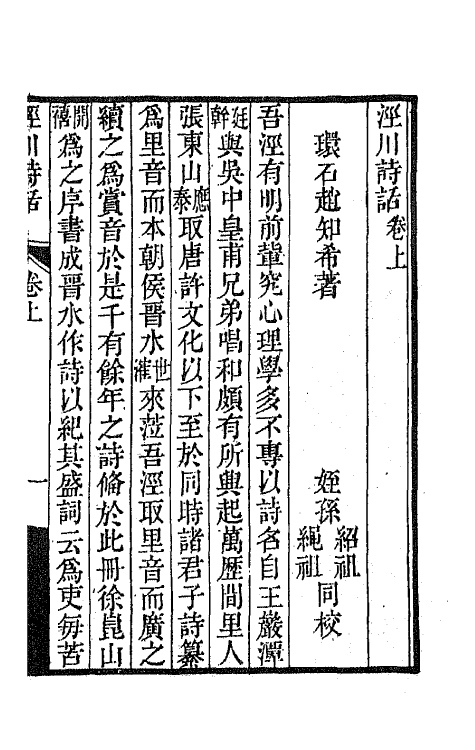 涇川詩話卷上
環石趙知希著　姪孫紹祖繩祖同校
吾涇有明前輩究心理學多不專以詩名自王巖潭
廷幹與吳中皇甫兄弟唱和頗有所興起萬歷間里人
張東山應泰取唐許文化以下至於同時諸君子詩纂
爲里音而本朝侯晋水世淮來蒞吾涇取里音而廣之
續之爲賞音於是千有餘年之詩備於此冊徐崑山
開禧爲之序書成晋水作詩以紀其盛詞云爲吏每苦
涇川詩話　卷上　一